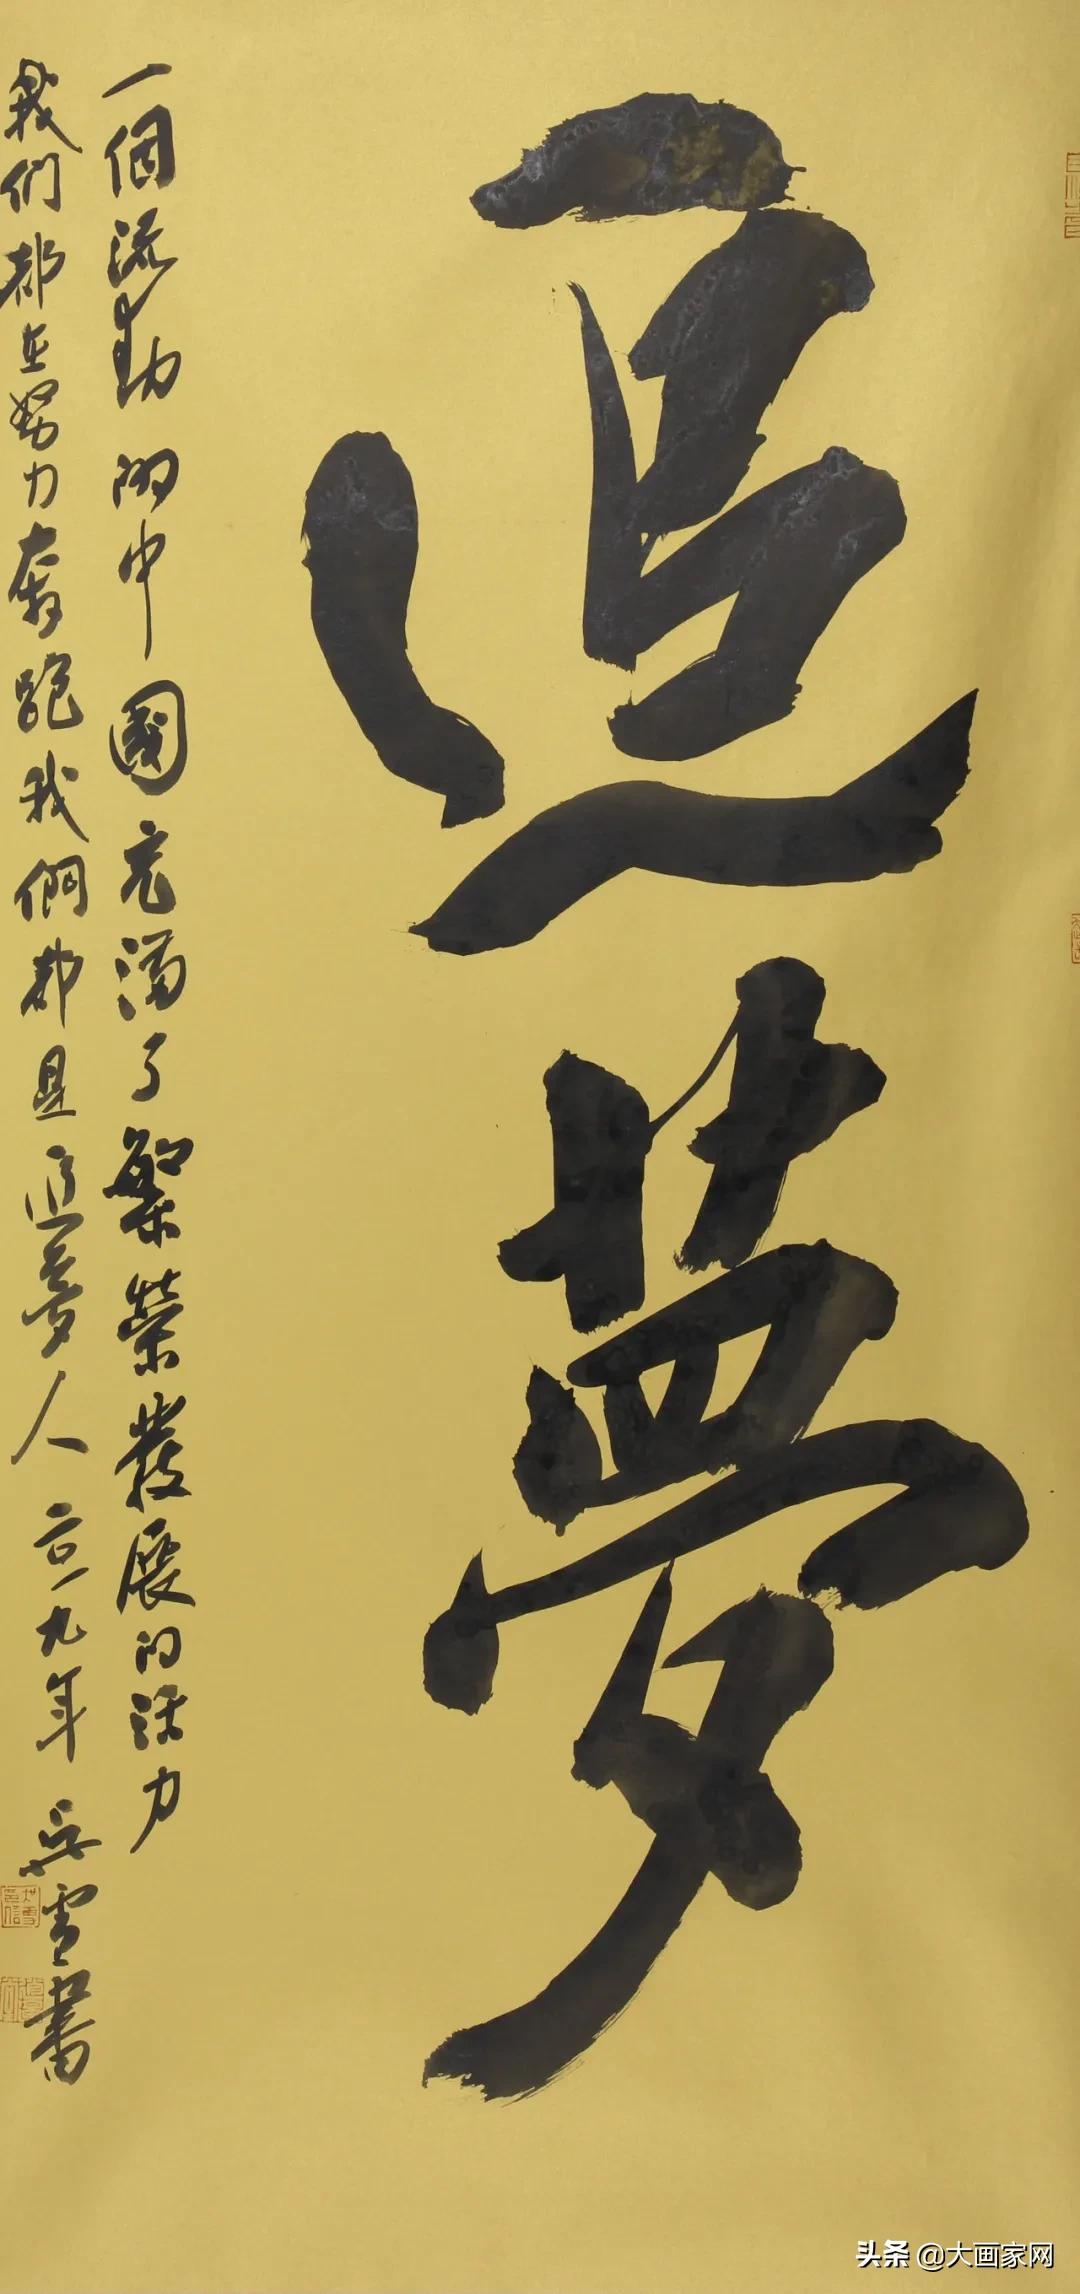 追夢
一個流動的中國充滿了繁榮發展的活力
我们都在努力奔跑我們都是追夢人 二〇一九年 吴雪書
头条 @大画家网